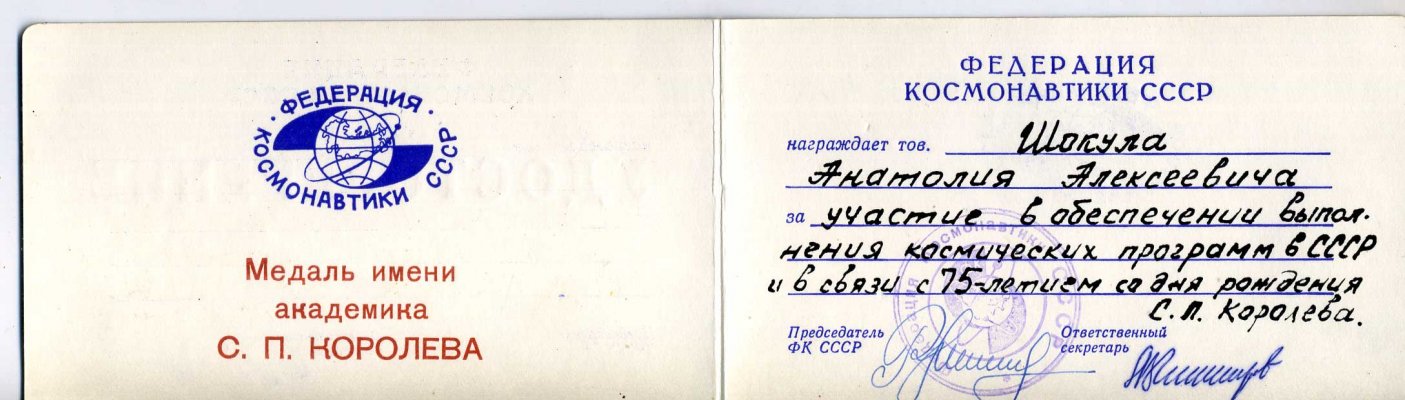 · ФЕДЕРАЦИЯ ·
КОСМОНАВТИКИ СССР
Медаль имени
академика
С. П. КОРОЛЕВА
ФЕДЕРАЦИЯ
КОСМОНАВТИКИ СССР
награждает тов. Шокула
Анатолия Алексеевича
за участие в обеспечении выпол-
нения космических программ в СССР
и в связи с 75-летием со дня рождения
С. П. Королева.
Председатель
ФК СССР
Ответственный
секретарь